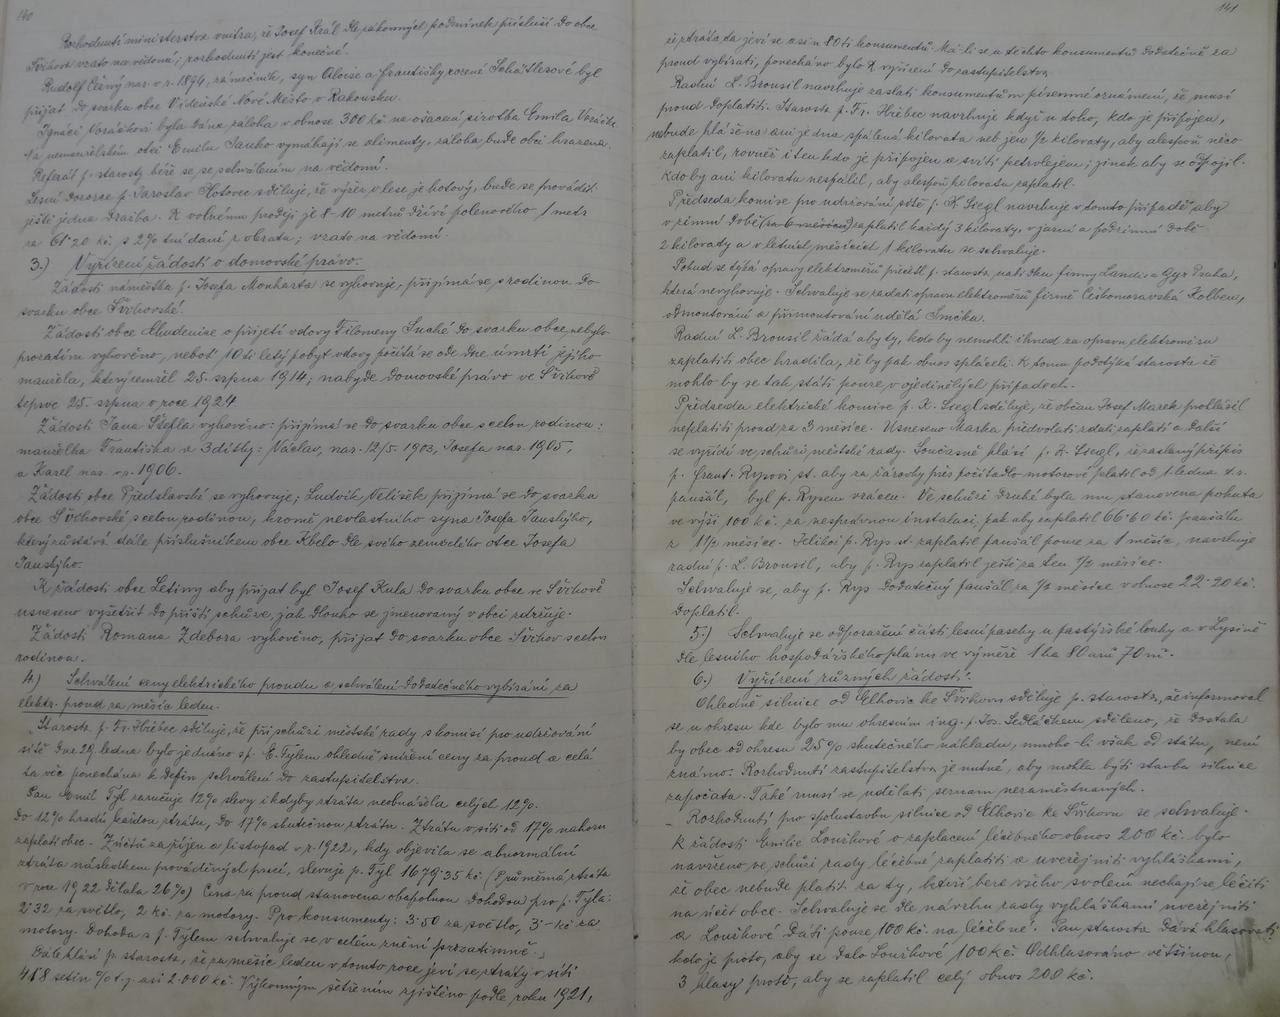 140
Rozhodnutí ministerstva vnitra, že Josef Král dle zákonných podmínek přísluší do obce
Švihova vzato na vědomí; rozhodnutí jest konečné.
Rudolf Černý nar. v r. 1894, zámečník, syn Aloise a Františky rozené Schätzlerové byl
přijat do svazku obce Vídeňské Nové Město v Rakousku.
Ignáci Voráčkovi byla dána záloha v obnose 300 Kč na ošacení sirotka Emila Voráčka.
Na nemanželském otci Emilu Janko vymáhají se alimenty, záloha bude obci hrazena.
Referát p. starosty béře se se schválením na vědomí.
Lesní dozorce p. Jaroslav Hotovec sděluje, že výřez v lese je hotový, bude se prováděti
ještě jedna dražba. K volnému prodeji je 8-10 metrů dříví polenového, 1 metr
za 61·20 kč. s 2% tní daní z obratu; vzato na vědomí.
3.) Vyřízení žádostí o domovské právo.
Žádosti náměstka p. Josefa Monharta se vyhovuje, přijímá se s rodinou do
svazku obce Švihovské.
Žádosti obce Chudenice o přijetí vdovy Filomeny Suché do svazku obce, nebylo
prozatím vyhověno, neboť 10ti letý pobyt vdovy počítá se ode dne úmrtí jejího
manžela, který zemřel 25. srpna 1914; nabyde domovské právo ve Švihově
teprve 25. srpna v roce 1924.
Žádosti Jana Štefla vyhověno: přijímá se do svazku obce s celou rodinou:
manželka Františka a 3 dítky: Václav, nar. 12/5. 1903, Josefa nar. 1905,
a Karel nar. v r. 1906.
Žádosti obce Předslavské se vyhovuje; Ludvík Velíšek přijímá se do svazku
obce Švihovské s celou rodinou, kromě nevlastního syna Josefa Janského,
který zůstává stále příslušníkem obce Kbelo dle svého zemřelého otce Josefa
Janského.
K žádosti obce Letiny aby přijat byl Josef Kula do svazku obce ve Švihově
usneseno vyšetřit do příští schůze, jak dlouho se jmenovaný v obci zdržuje.
Žádosti Romana Zdebora vyhověno, přijat do svazku obce Švihov s celou
rodinou.
4.) Schválení ceny elektrického proudu a schválení dodatečného vybírání za
elektr. proud za měsíc leden.
Starosta p. Fr. Hřebec sděluje, že při schůzi městské rady s komisí pro udržování
sítě dne 29. ledna bylo jednáno s p. E. Tylem ohledně snížení ceny za proud a celá
ta věc ponechána k defin. schválení do zastupitelstva.
Pan Emil Tyl zaručuje 12% slevy i kdyby ztráta neobnášela celých 12%.
Do 12% hradí každou ztrátu, do 17% skutečnou ztrátu. Ztrátu v síti od 17% nahoru
zaplatí obec. Z účtů za říjen a listopad v r. 1922, kdy objevila se abnormální
ztráta následkem prováděných prací, slevuje p. Tyl 1679·35 kč. (Průměrná ztráta
v roce 1922 dělala 26%) Cena za proud stanovena obapolnou dohodou pro p. Tyla:
2·32 za světlo, 2 kč. za motory. Pro konsumenty: 3·50 za světlo, 3·- kč za
motory. Dohoda s p. Tylem schvaluje se v celém znění prozatímně.
Dále hlásí p. starosta, že za měsíc leden v tomto roce jeví se ztráty v síti
418 setin % t. j. asi 2.000 kč. Výkonným šetřením zjištěno podle roku 1921,
141
že ztráta ta jeví se asi u 80ti konsumentů. Má-li se u těchto konsumentů dodatečně za
proud vybírati, ponecháno bylo k vyřízení do zastupitelstva.
Radní L. Brousil navrhuje zaslati konsumentům písemné oznámení, že musí
proud doplatiti. Starosta p. Fr. Hřebec navrhuje když u toho, kdo je připojen,
nebude hlášena ani jedna spálená kilovata neb jen 1/2 kilovaty, aby alespoň něco
zaplatil, rovněž i ten kdo je připojen a svítí petrolejem; jinak aby se odpojil.
Kdo by ani kilovatu nespálil, aby alespoň kilovatu zaplatil.
Předseda komise pro udržování sítě p. K. Siegl navrhuje v tomto případě aby
v zimní době (za 6 měsíců) zaplatil každý 3 kilovaty, v jarní a podzimní době
2 kilovaty a v letních měsících 1 kilovatu se schvaluje.
Pokud se týká opravy elektroměrů přečetl p. starosta nabídku firmy Landis a Gyr Praha,
která nevyhovuje. Schvaluje se zadati opravu elektroměrů firmě Českomoravská Kolben,
odmontování a přimontování udělá Smčka.
Radní L. Brousil žádá aby ty, kdo by nemohli ihned za opravu elektroměru
zaplatiti obec hradila, že by pak obnos spláceli. K tomu podotýká starosta že
mohlo by se tak státi pouze v ojedinělých případech.
Předseda elektrické komise p. K. Siegl sděluje, že občan Josef Marek prohlásil
neplatiti proud za 3 měsíce. Usneseno Marka předvolati zdali zaplatí a další
se vyřídí ve schůzi městské rady. Současně hlásí p. K. Siegl, že zaslaný přípis
p. Frant. Rysovi st. aby za žárovky přes počítadlo motorové platil od 1. ledna t. r.
paušál, byl p. Rysem vrácen. Ve schůzi druhé byla mu stanovena pokuta
ve výši 100 kč. za nesprávnou instalaci, pak aby zaplatil 66·60 kč. paušálu
z 1 1/2 měsíce. Jelikož p. Rys st. zaplatil paušál pouze za 1 měsíc, navrhuje
radní p. L. Brousil, aby p. Rys zaplatil ještě za ten 1/2 měsíce.
Schvaluje se, aby p. Rys dodatečný paušál za 1/2 měsíce v obnose 22·20 kč.
doplatil.
5.) Schvaluje se odprodání části lesní paseky u pastýřské louky a v Lysině
dle lesního hospodářského plánu ve výměře 1 ha 80 arů 70 m².
6.) Vyřízení různých žádostí.
Ohledně silnice od Elhovic ke Švihovu sděluje p. starosta, že informoval
se u okresu kde bylo mu okresním ing. p. Jos. Sedláčkem sděleno, že dostala
by obec od okresu 25% skutečného nákladu, mnoho-li však od státu, není
známo. Rozhodnutí zastupitelstva je nutné, aby mohla býti stavba silnice
započata. Také musí se udělati seznam nezaměstnaných.
- Rozhodnutí pro spolustavbu silnice od Elhovic ke Švihovu se schvaluje.
K žádosti Emilie Louřkové o zaplacení léčebného obnos 200 kč. bylo
navrženo ve schůzi rady léčebné zaplatiti a uveřejniti vyhláškami,
že obec nebude platit za ty, kteří beze všeho svolení nechají se léčiti
na účet obce. Schvaluje se dle návrhu rady vyhláškami uveřejniti
a Louřkové dáti pouze 100 kč. na léčebné. Pan starosta dává hlasovati
kdo je proto, aby se dalo Louřkové 100 kč. Odhlasováno většinou,
3 hlasy proto, aby se zaplatil celý obnos 200 kč.